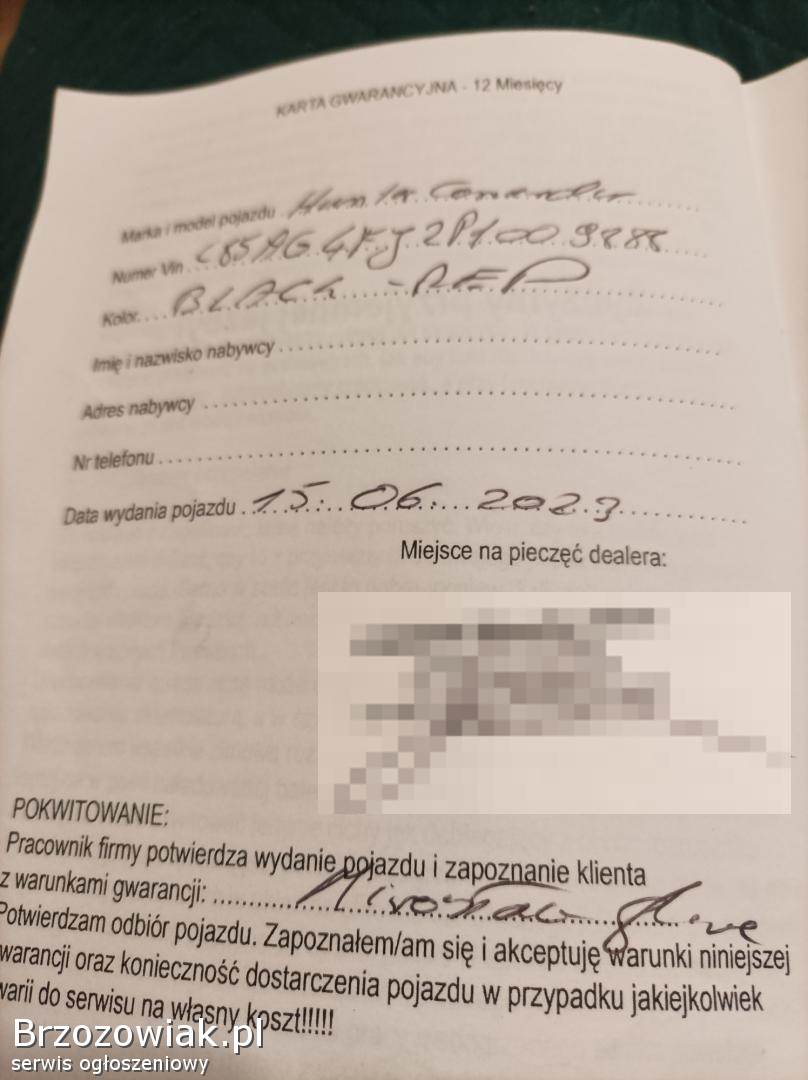 KARTA GWARANCYJNA - 12 Miesięcy
Marka i model pojazdu
Numer Vin
Kolor.... BLACK - RED
Imię i nazwisko nabywcy
Adres nabywcy
Nr telefonu
Data wydania pojazdu 15. 06. 2023
Miejsce na pieczęć dealera:
POKWITOWANIE:
Pracownik firmy potwierdza wydanie pojazdu i zapoznanie klienta
z warunkami gwarancji: Mirosław
Potwierdzam odbiór pojazdu. Zapoznałem/am się i akceptuję warunki niniejszej
warancji oraz konieczność dostarczenia pojazdu w przypadku jakiejkolwiek
warii do serwisu na własny koszt!!!!!
Brzozowiak.pl
serwis ogłoszeniowy